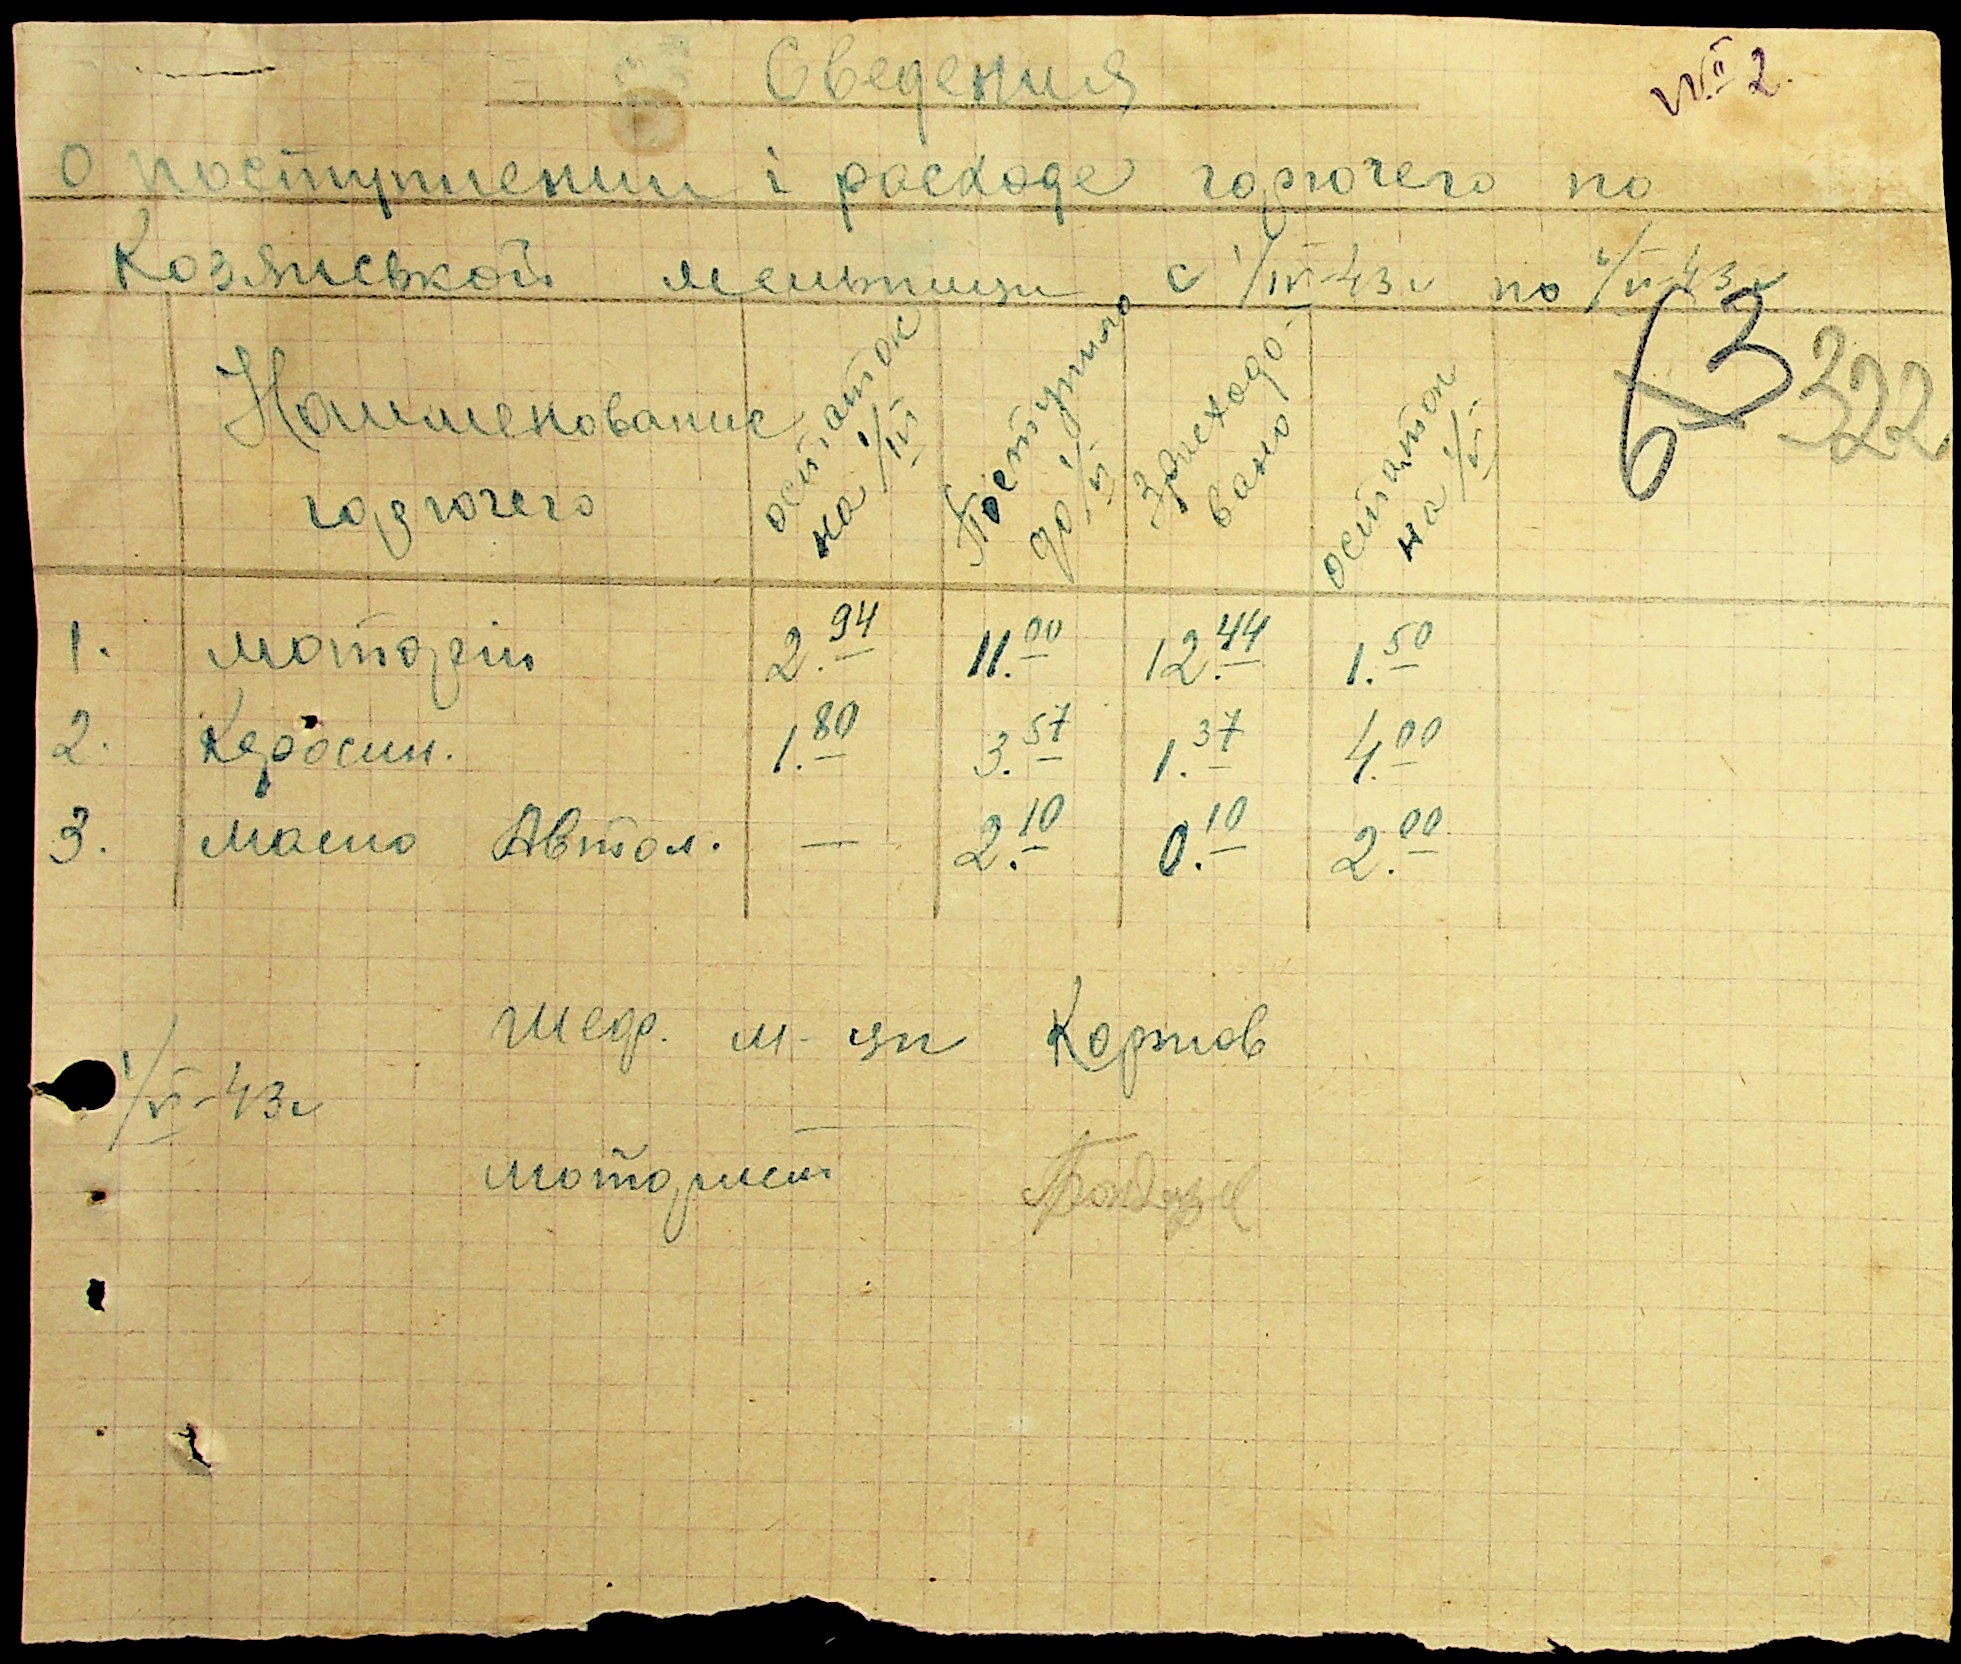 Сведения
№ 2.
о поступлении і расходе горючего по
Козлиевкой мельници с 1/IV-43 г по 1/VI-43 г
63 322
Наименование горючего
остаток на 1/IV
Поступило до 1/VI
Зрасходовано
остаток на 1/VI
1. моторін 2.94 11.00 12.44 1.50
2. Керосин. 1.80 3.57 1.37 4.00
3. масло Автол. — 2.10 0.10 2.00
Шеф. м-ци Карпов
1/VI-43 г
моторист